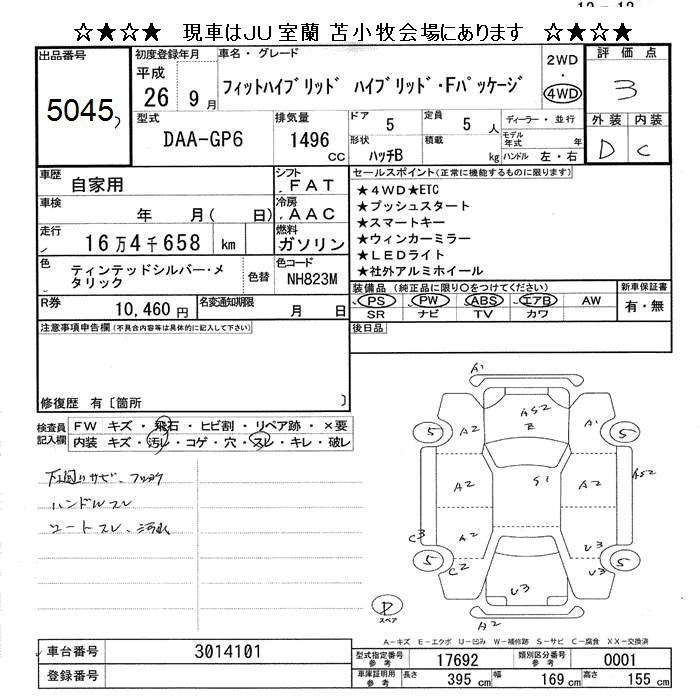 ☆★☆★ 現車はJU室蘭 苫小牧会場にあります ☆★☆★
出品番号
5045
初度登録年月
平成
26 9月
車名・グレード
フィットハイブリッド ハイブリッド・Fパッケージ
2WD
・
4WD
評価点
3
型式
DAA-GP6
排気量
1496
CC
ドア 5
定員 5 人
形状 ハッチB
積載 kg
ディーラー・並行
モデル年式 年式
ハンドル 左・右
外装 内装
D C
車歴
自家用
シフト
FAT
車検
年 月( 日)
冷房
AAC
走行
16万4千658 km
燃料
ガソリン
色
ティンテッドシルバー・メタリック
色替
色コード
NH823M
R券
10,460円
名変通知期限
月 日
セールスポイント(正常に機能するものに限ります)
★4WD★ETC
★プッシュスタート
★スマートキー
★ウィンカーミラー
★LEDライト
★社外アルミホイール
装備品 (純正品に限り○をつけてください)
PS PW ABS エアB AW
SR ナビ TV カワ
新車保証書
有・無
注意事項申告欄(不具合内容等は具体的に記入して下さい)
後日品
修復歴 有〔箇所 〕
検査員記入欄
FW キズ・飛石・ヒビ割・リペア跡・×要
内装 キズ・汚レ・コゲ・穴・スレ・キレ・破レ
下回りサビ、フショク
ハンドルスレ
シートスレ、汚れ
A1
AS2
E
A2
A1
5
5
A2
S1
A2
AS2
A2
C3
U3
5
C2
U3
5
U3
P
スペア
A2
A-キズ E-エクボ U-凹み W-補修跡 S-サビ C-腐食 XX-交換済
車台番号 3014101
登録番号
型式指定番号 参考 17692
類別区分番号 参考 0001
車庫証明用 参考 長さ 395 cm 幅 169 cm 高さ 155 cm